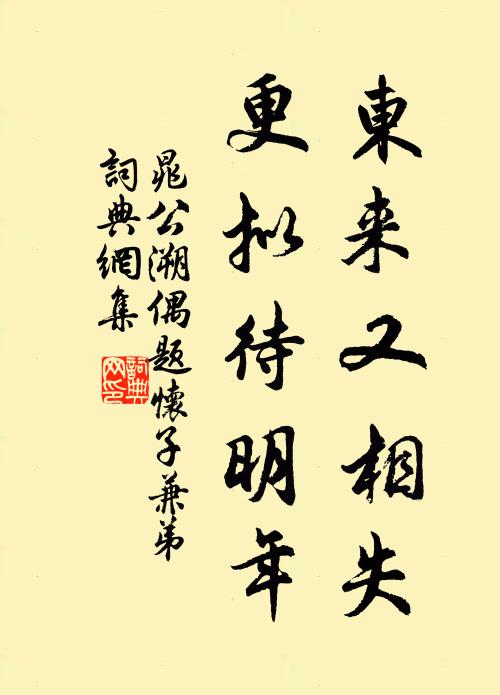 東来又相失
更拟待明年
晁公溯偶题懷子兼弟
詞典網集
詞典
网印